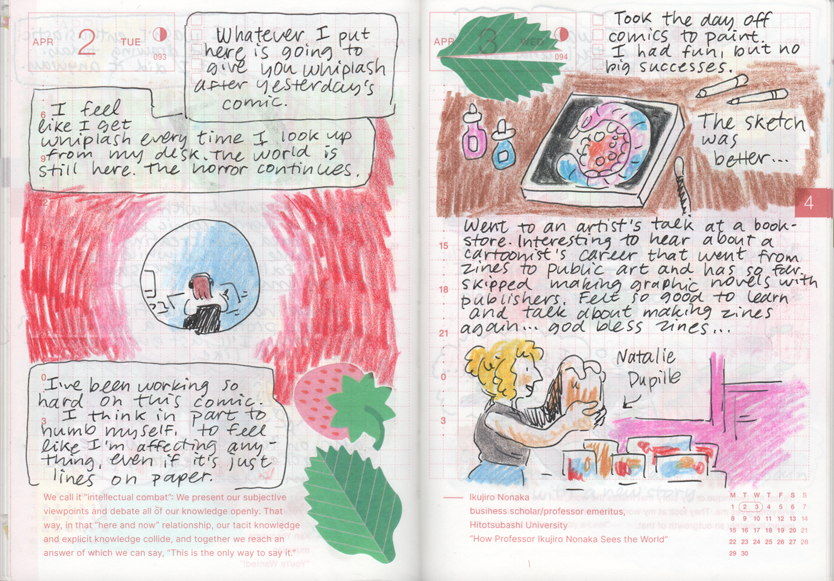 APR 2 TUE
093
Whatever I put
here is going to
give you whiplash
after yesterday's
comic.
I feel
like I get
whiplash every time I look up
from my desk. The world is
still here. The horror continues.
I've been working so
hard on this comic.
I think in part to
numb myself, to feel
like I'm affecting any-
thing, even if it's just
lines on paper.
We call it "intellectual combat": We present our subjective
viewpoints and debate all of our knowledge openly. That
way, in that "here and now" relationship, our tacit knowledge
and explicit knowledge collide, and together we reach an
answer of which we can say, "This is the only way to say it."
APR 3 WED
094
Took the day off
comics to paint.
I had fun, but no
big successes.
The sketch
was
better...
4
Went to an artist's talk at a book-
store. Interesting to hear about a
cartoonist's career that went from
zines to public art and has so far
skipped making graphic novels with
publishers. Felt so good to learn
and talk about making zines
again... god bless zines...
15
18
21
0
3
Natalie
Dupille
Ikujiro Nonaka
business scholar/professor emeritus,
Hitotsubashi University
"How Professor Ikujiro Nonaka Sees the World"
M T W T F S S
1 2 3 4 5 6 7
8 9 10 11 12 13 14
15 16 17 18 19 20 21
22 23 24 25 26 27 28
29 30